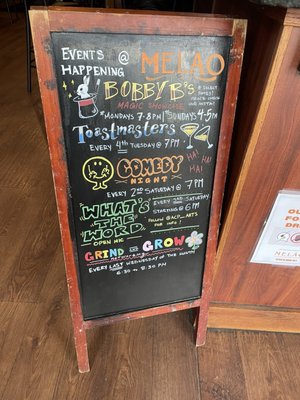 EVENTS @
HAPPENING
MELAO
BOBBY B'S
MAGIC SHOWCASE
MONDAYS 7-8PM / SUNDAYS 4-5PM
TOASTMASTERS
EVERY 4TH TUESDAY @ 7PM
HA!
HA!
HA!
COMEDY
NIGHT
EVERY 2ND SATURDAY @ 7PM
WHAT'S
THE
WORD
OPEN MIC
EVERY
SATURDAY
STARTING @ 6PM
FOLLOW @ACP_ARTS
FOR INFO!
GRIND AND GROW
EVERY LAST WEDNESDAY OF THE MONTH
6:30 ~ 8:30 PM
MELAO